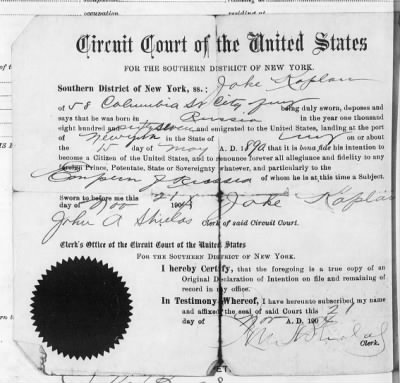 occupation
residing at
Circuit Court of the United States
FOR THE SOUTHERN DISTRICT OF NEW YORK.
Southern District of New York, ss.: Jake Kaplan
of 58 Columbia St City being duly sworn, deposes and
says that he was born in Russia in the year one thousand
eight hundred and sixty seven and emigrated to the United States, landing at the port
of New York in the State of on or about
the 15 day of May A. D. 1892 that it is bona fide his intention to
become a Citizen of the United States, and to renounce forever all allegiance and fidelity to any
foreign Prince, Potentate, State or Sovereignty whatever, and particularly to the
Emperor of Russia of whom he is at this time a Subject.
Sworn to before me this 21
day of Nov 190 Jake Kaplan
John A Shields Clerk of said Circuit Court.
Clerk's Office of the Circuit Court of the United States
FOR THE SOUTHERN DISTRICT OF NEW YORK.
I hereby Certify, that the foregoing is a true copy of an
Original Declaration of Intention on file and remaining of
record in my office.
In Testimony Whereof, I have hereunto subscribed my name
and affixed the seal of said Court this 21
day of Nov A. D. 190
Clerk.